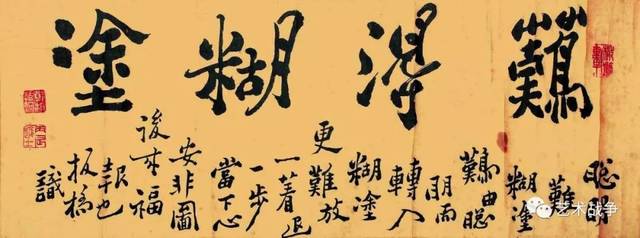 難得糊塗
聰明
難
糊塗
難由聰
明而
轉入
糊塗
更難放
一著退
一步
當下心
安非圖
後來福
報也
板橋
識
艺术战争